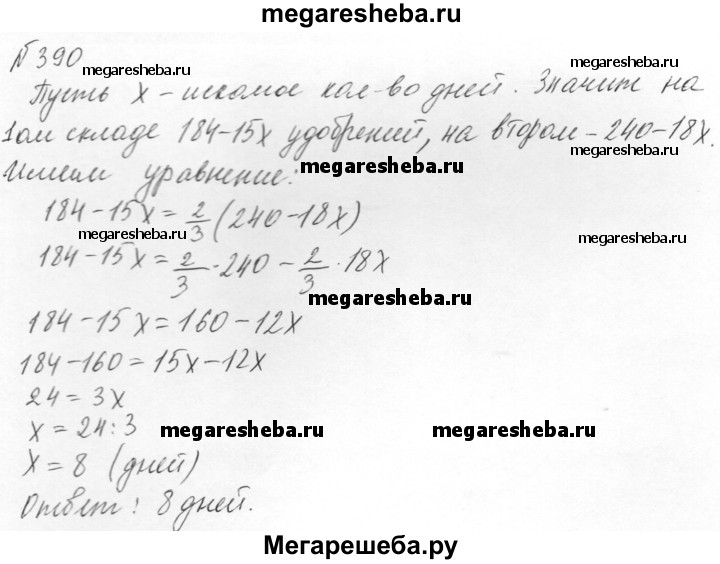 megaresheba.ru
№390
megaresheba.ru
megaresheba.ru
Пусть х - искомое кол-во дней. Значит на
megaresheba.ru
1ом складе 184-15х удобрений, на втором - 240-18х.
megaresheba.ru
Имеем уравнение:
megaresheba.ru
184-15х = 2/3 (240-18х)
megaresheba.ru
megaresheba.ru
184-15х = 2/3 · 240 - 2/3 · 18х
megaresheba.ru
184-15х = 160-12х
184-160 = 15х-12х
24 = 3х
х = 24:3
megaresheba.ru
megaresheba.ru
х = 8 (дней)
Ответ: 8 дней.
Мегарешеба.ру